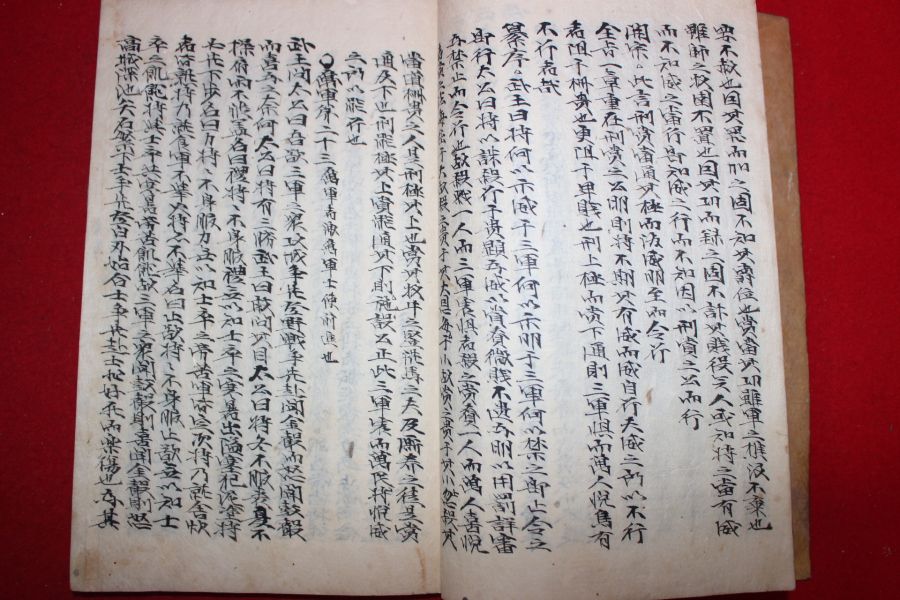 要不赦也因其罪而加之固不知其爵位也賞當其功雖軍之樵汲不棄也
雖師之牧圉不置也因其功而錄之固不計其賤役三人或知將之當有威
而不知威之當行皆知威之行而不知因以刑賞之公而行
開宗 此言刑賞當通其極而後威明至而令行
全旨一章重在刑賞之公明則將不期其有威而威自行夫威之所以不行
者阻于柵貴也更阻于卑賤也刑上極而賞下通則三軍惧而萬人悅烏有
不行者哉
纂序 武王曰將何以示威于三軍何以示明于三軍何以禁之即止令之
即行太公曰將以誅殺行于貴顯為威以賞眷微賤不遺為明以用罰詳審
為禁止而令行也故殺一人而三軍害惧者殺之賞一人而萬人喜悅
當道柵貴之人是刑極其上也賞其牧牛之豎洗馬之夫及廝養之徒是賞
通及下也刑能極其上賞能通其下則公正此三軍害而萬民將悅威
之所以能行也
勵軍第二十三 勵軍者激勵軍士使前進也
武王問太公曰吾欲三軍之衆攻城爭先登野戰爭先赴聞金聲而怒聞鼓聲
而喜為之奈何太公曰將有三勝武王曰敢問其目太公曰將冬不服裘夏不
操扇雨不張蓋名曰禮將將不身服禮無以知士卒之寒暑出隘塞犯泥塗將
必先下步名曰力將將不身服力無以知士卒之勞苦軍皆定次將乃就舍炊
者皆熟將乃就食軍不舉火將亦不舉名曰止欲將將不身服止欲無以知士
卒之飢飽將與士卒共寒暑勞苦飢飽故三軍之衆聞鼓聲則喜聞金聲則怒
高城深池矢石繁下士爭先登白刃始合士爭先赴士非好死而樂傷也為其